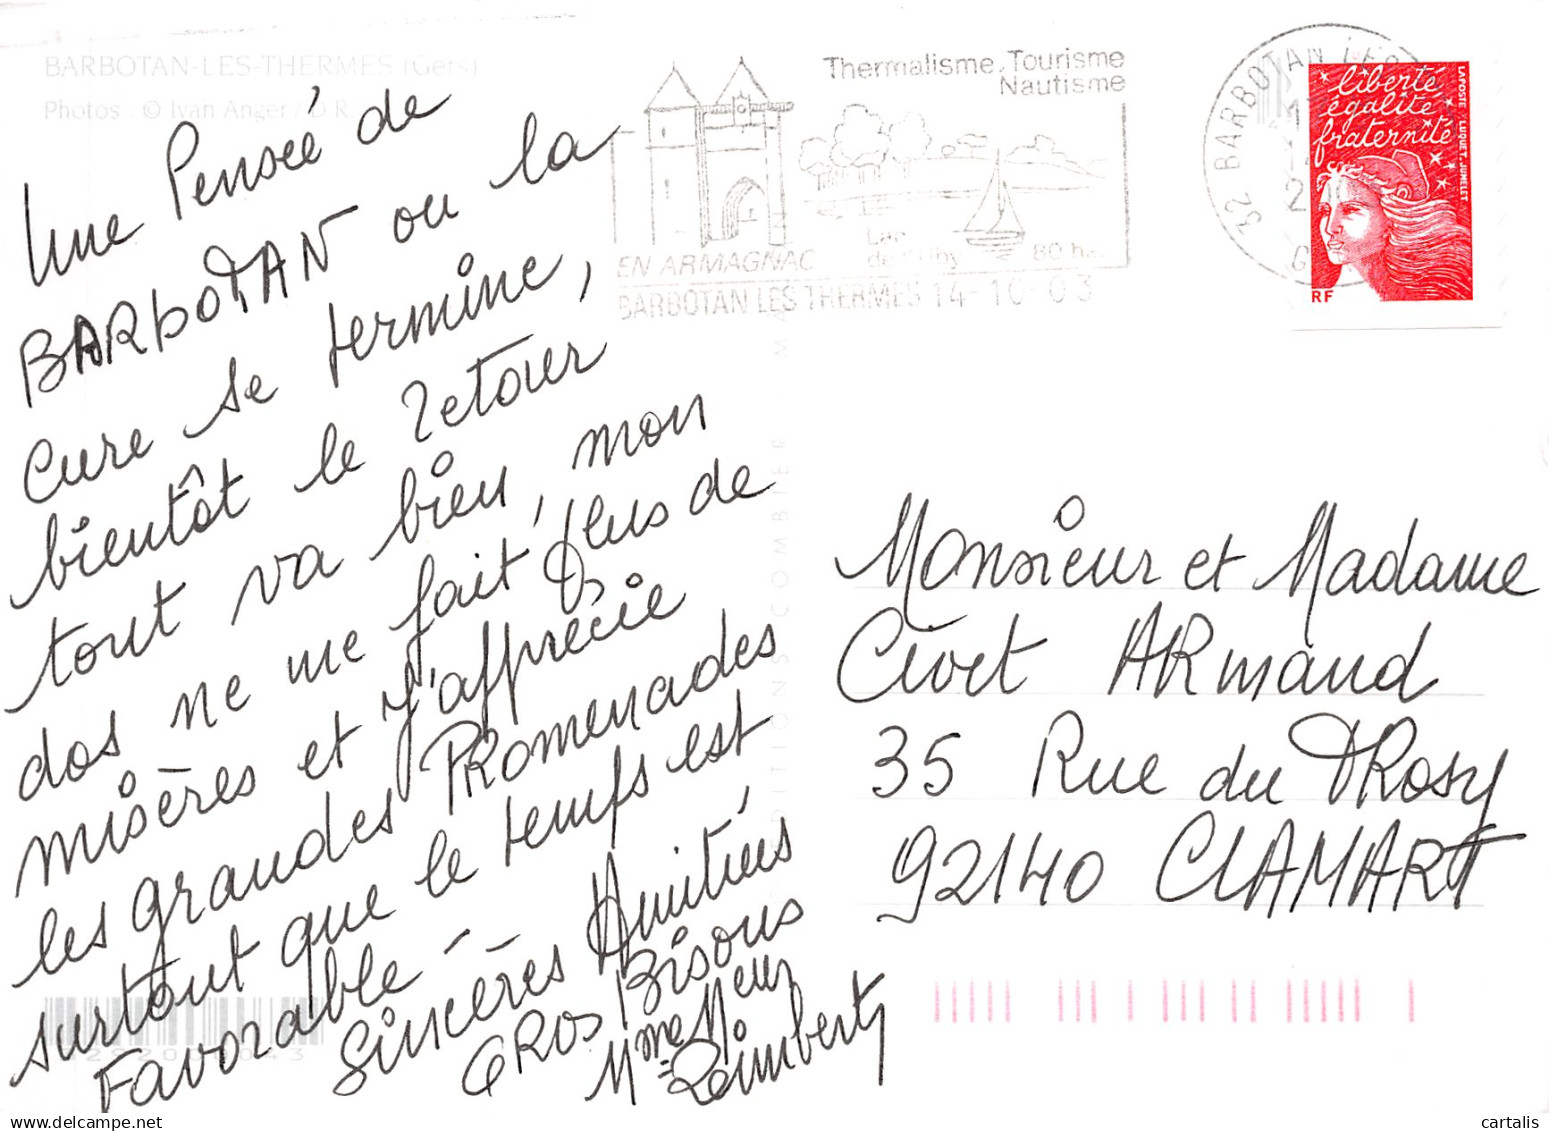 BARBOTAN-LES-THERMES (Gers)
Photos : © Ivan Anger / D.R.
Une Pensée de
BARBOTAN ou la
Cure se termine,
bientôt le retour
tout va bien, mon
dos ne me fait plus de
misères et j'apprécie
les grandes Promenades
surtout que le temps est
Favorable -
Sincères Amitiés,
GROS Bisous
Thermalisme, Tourisme
Nautisme
EN ARMAGNAC
Lac
80 ha
BARBOTAN LES THERMES 14-10-03
32 BARBOTAN LES
liberté
égalité
fraternité
LA POSTE LUQUET, JUMELET
RF
EDITIONS COMBIER
Monsieur et Madame
Civet ARmand
35 Rue du TROSY
92140 CLAMART
cartalis